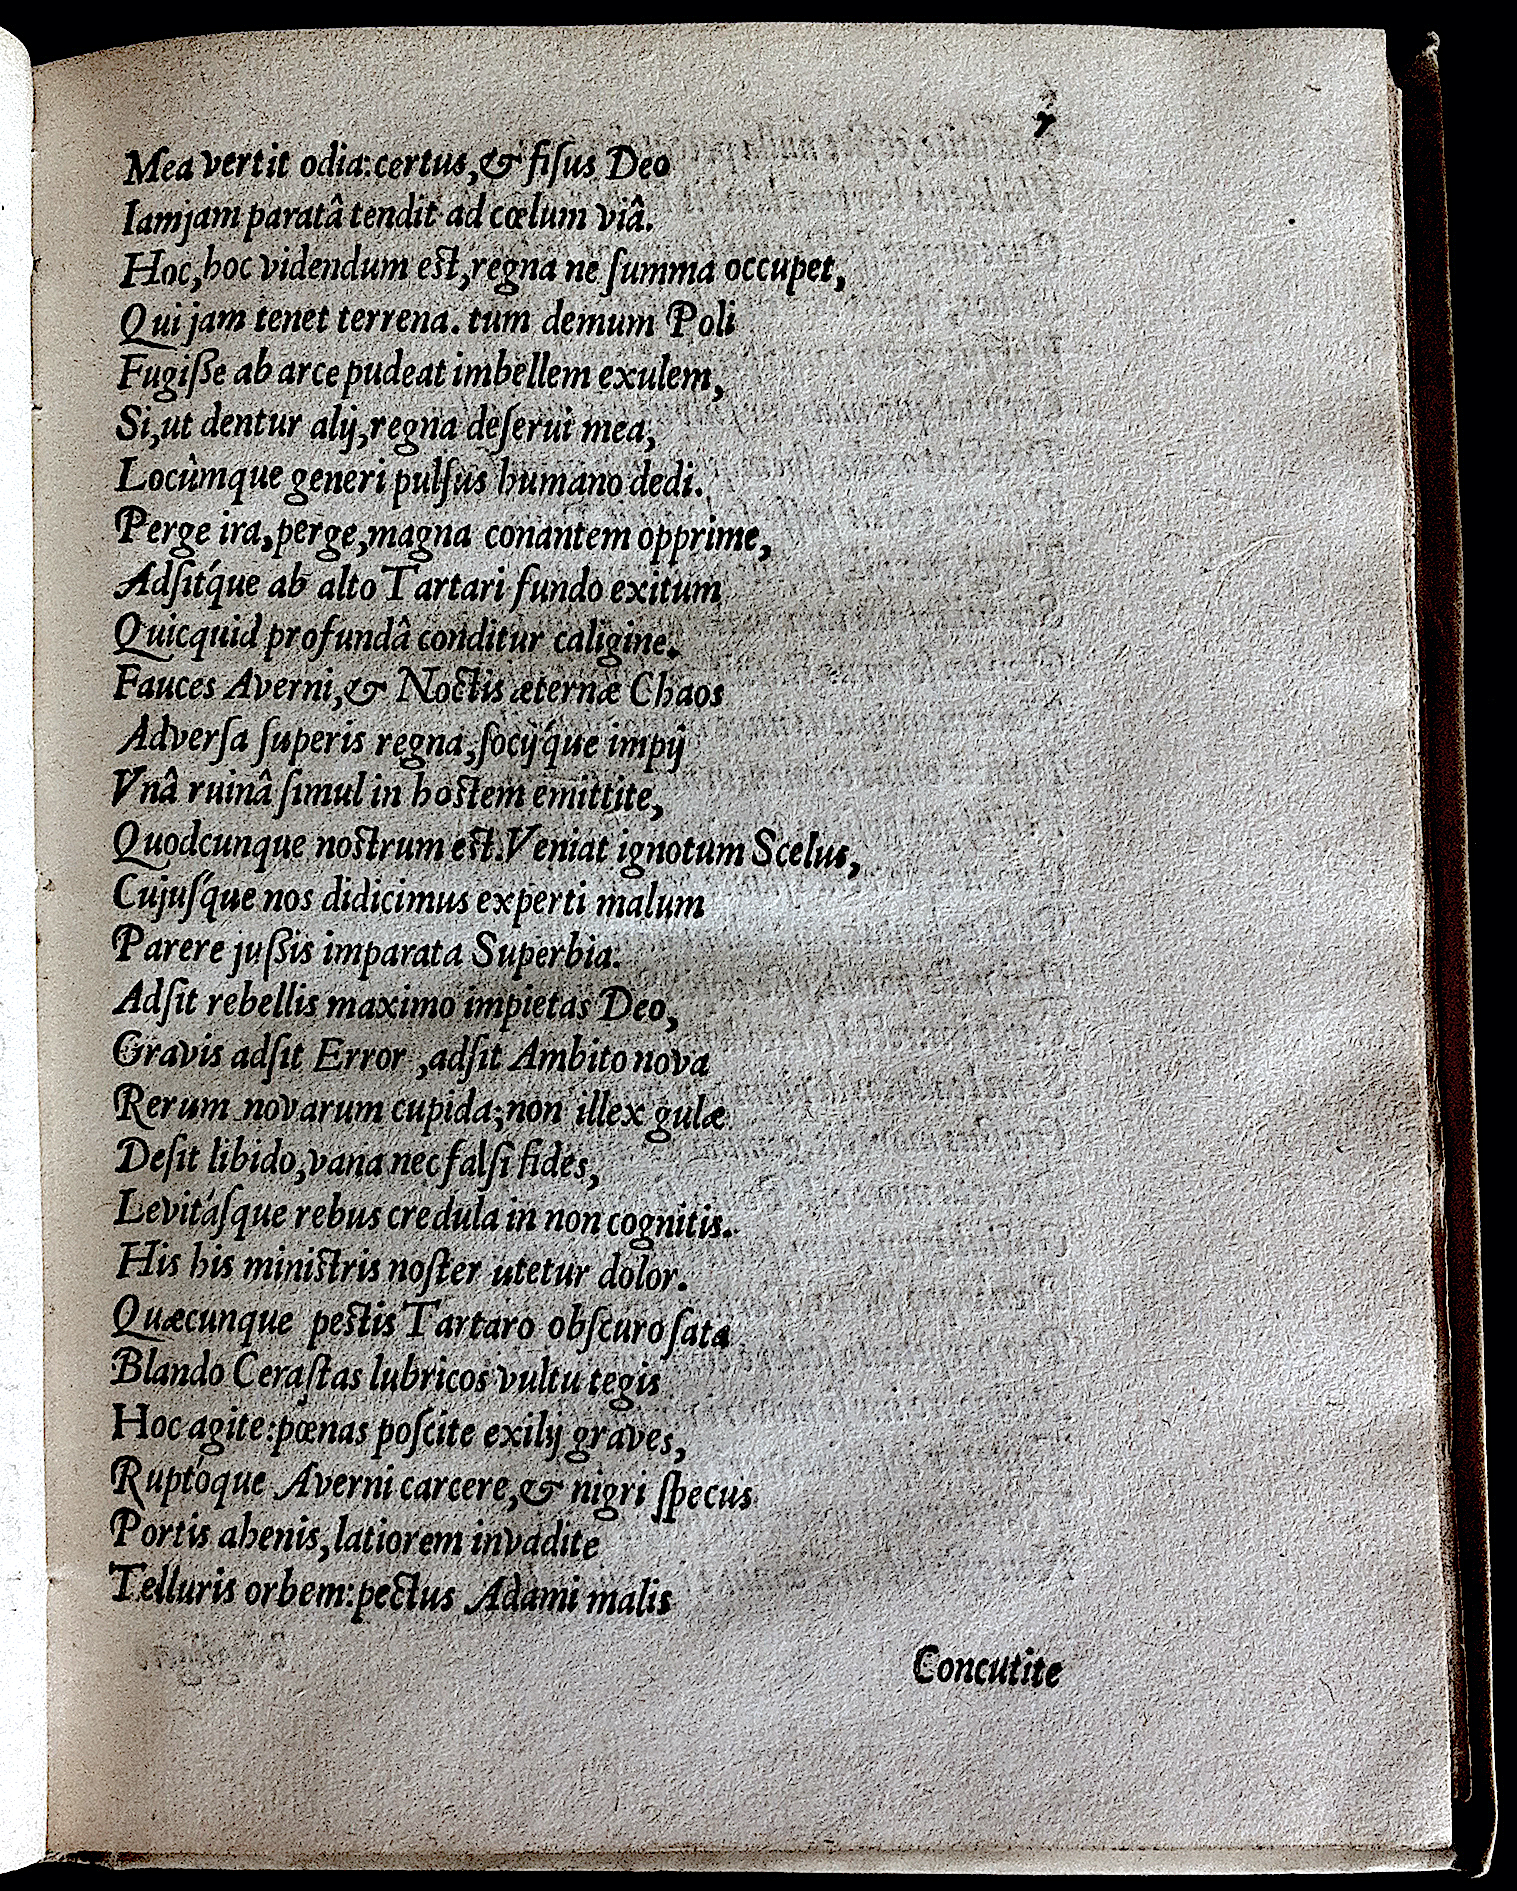 Mea vertit odia:certus,& fiſus Deo
Iamjam paratâ tendit ad cœlum viâ.
Hoc,hoc videndum est,regna ne ſumma occupet,
Qui jam tenet terrena. tum demum Poli
Fugiſſe ab arce pudeat imbellem exulem,
Si,ut dentur alij,regna deſerui mea,
Locùmque generi pulſus humano dedi.
Perge ira,perge,magna conantem opprime,
Adſit'que ab alto Tartari fundo exitum
Quicquid profundâ conditur caligine.
Fauces Averni,& Noctis æternæ Chaos
Adverſa ſuperis regna,ſocij'que impij
Vnâ ruinâ ſimul in hostem emittite,
Quodcunque nostrum est.Veniat ignotum Scelus,
Cujuſ'que nos didicimus experti malum
Parere juſſis imparata Superbia.
Adſit rebellis maximo impietas Deo,
Gravis adſit Error ,adſit Ambito nova
Rerum novarum cupida;non illex gulæ
Deſit libido,vana nec falſi fides,
Levitáſque rebus credula in non cognitis.
His his ministris noſter utetur dolor.
Quæcunque pestis Tartaro obſcuro ſata
Blando Ceraſtas lubricos vultu tegis
Hoc agite:pœnas poſcite exilij graves,
Ruptóque Averni carcere,& nigri ſpecus
Portis ahenis,latiorem invadite
Telluris orbem:pectus Adami malis
Concutite